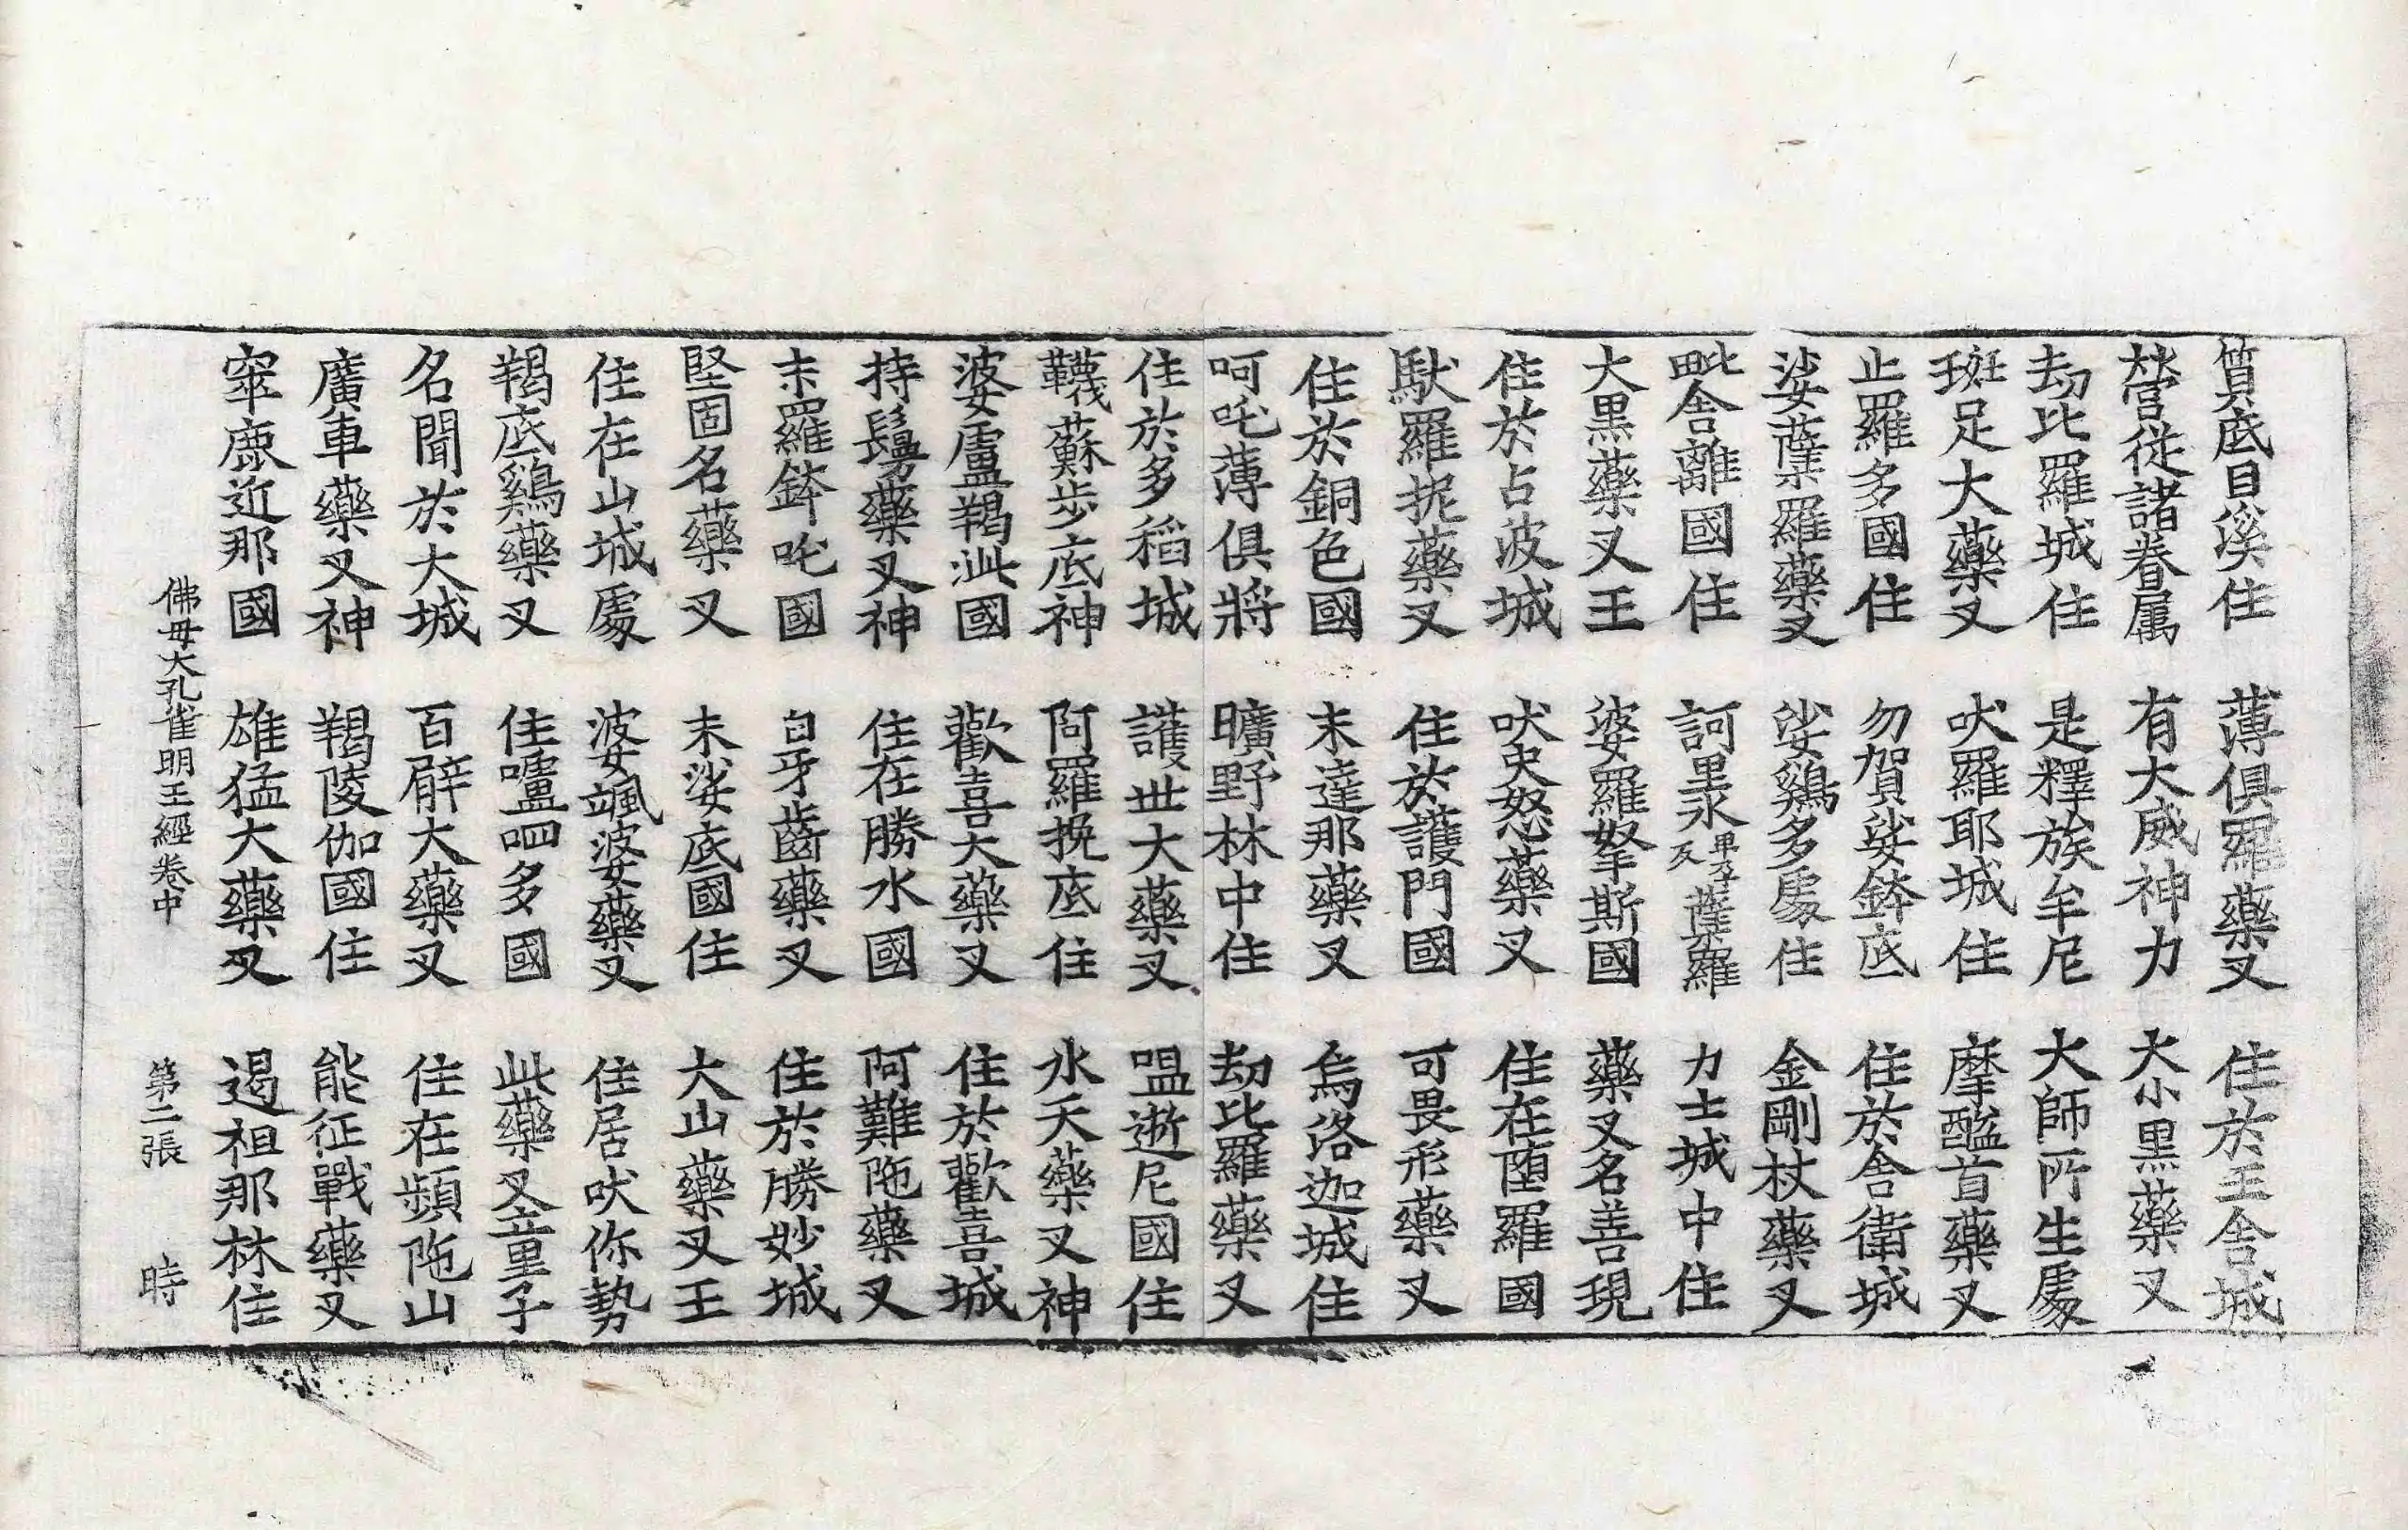 質底目溪住 薄俱羅藥叉 住於王舍城
營從諸眷属 有大威神力 大小黑藥叉
劫比羅城住 是釋族牟尼 大師所生處
斑足大藥叉 吠羅耶城住 摩醯首藥叉
止羅多國住 勿賀娑鉢底 住於舍衛城
娑蘖羅藥叉 娑鷄多處住 金剛杖藥叉
毗舍離國住 訶里氷卑孕反蘖羅 力士城中住
大黑藥叉王 婆羅拏斯國 藥叉名善現
住於占波城 吠史怒藥叉 住在堕羅國
馱羅抳藥叉 住於護門國 可畏形藥叉
住於銅色國 末達那藥叉 烏洛迦城住
呵吒薄俱將 曠野林中住 劫比羅藥叉
住於多稻城 護世大藥叉 嗢逝尼國住
韈蘇步底神 阿羅挽底住 水天藥叉神
婆盧羯泚國 歡喜大藥叉 住於歡喜城
持鬘藥叉神 住在勝水國 阿難陁藥叉
末羅鉢吒國 白牙齒藥叉 住於勝妙城
堅固名藥叉 末娑底國住 大山藥叉王
住在山城處 婆颯婆藥叉 住居吠你勢
羯底鷄藥叉 住嚧呬多國 此藥叉童子
名聞於大城 百臂大藥叉 住在頻陁山
廣車藥叉神 羯陵伽國住 能征戰藥叉
窣鹿近那國 雄猛大藥叉 遏祖那林住
佛母大孔雀明王經卷中 第二張 時